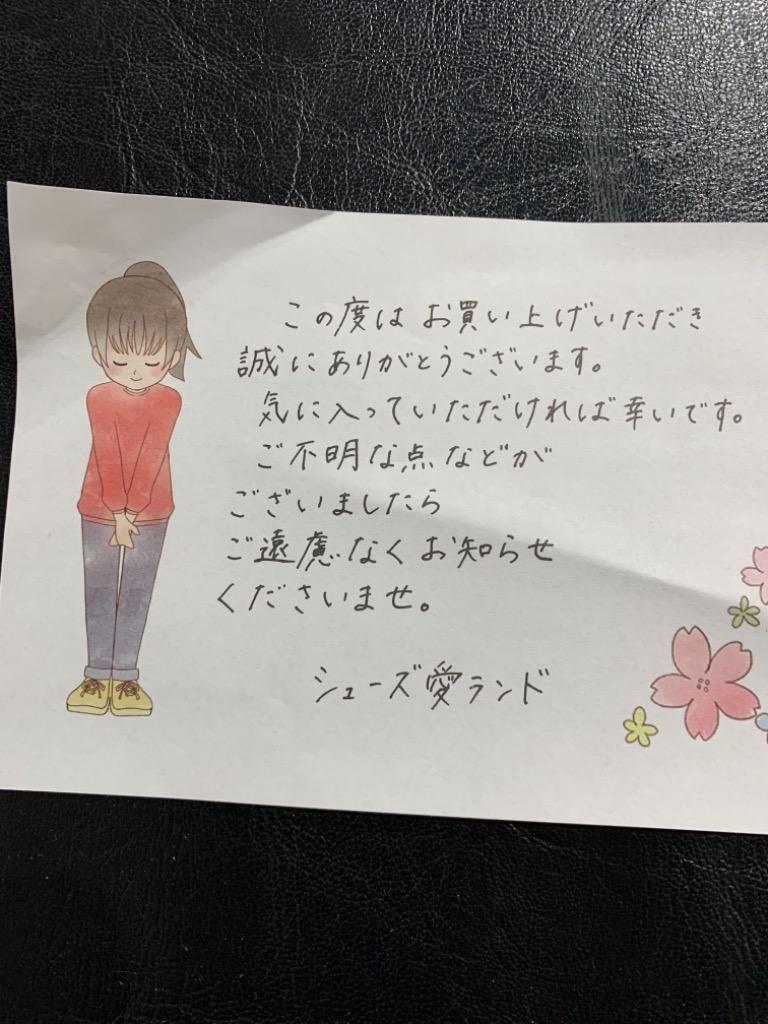 この度はお買い上げいただき
誠にありがとうございます。
気に入っていただければ幸いです。
ご不明な点などが
ございましたら
ご遠慮なくお知らせ
くださいませ。
シューズ愛ランド